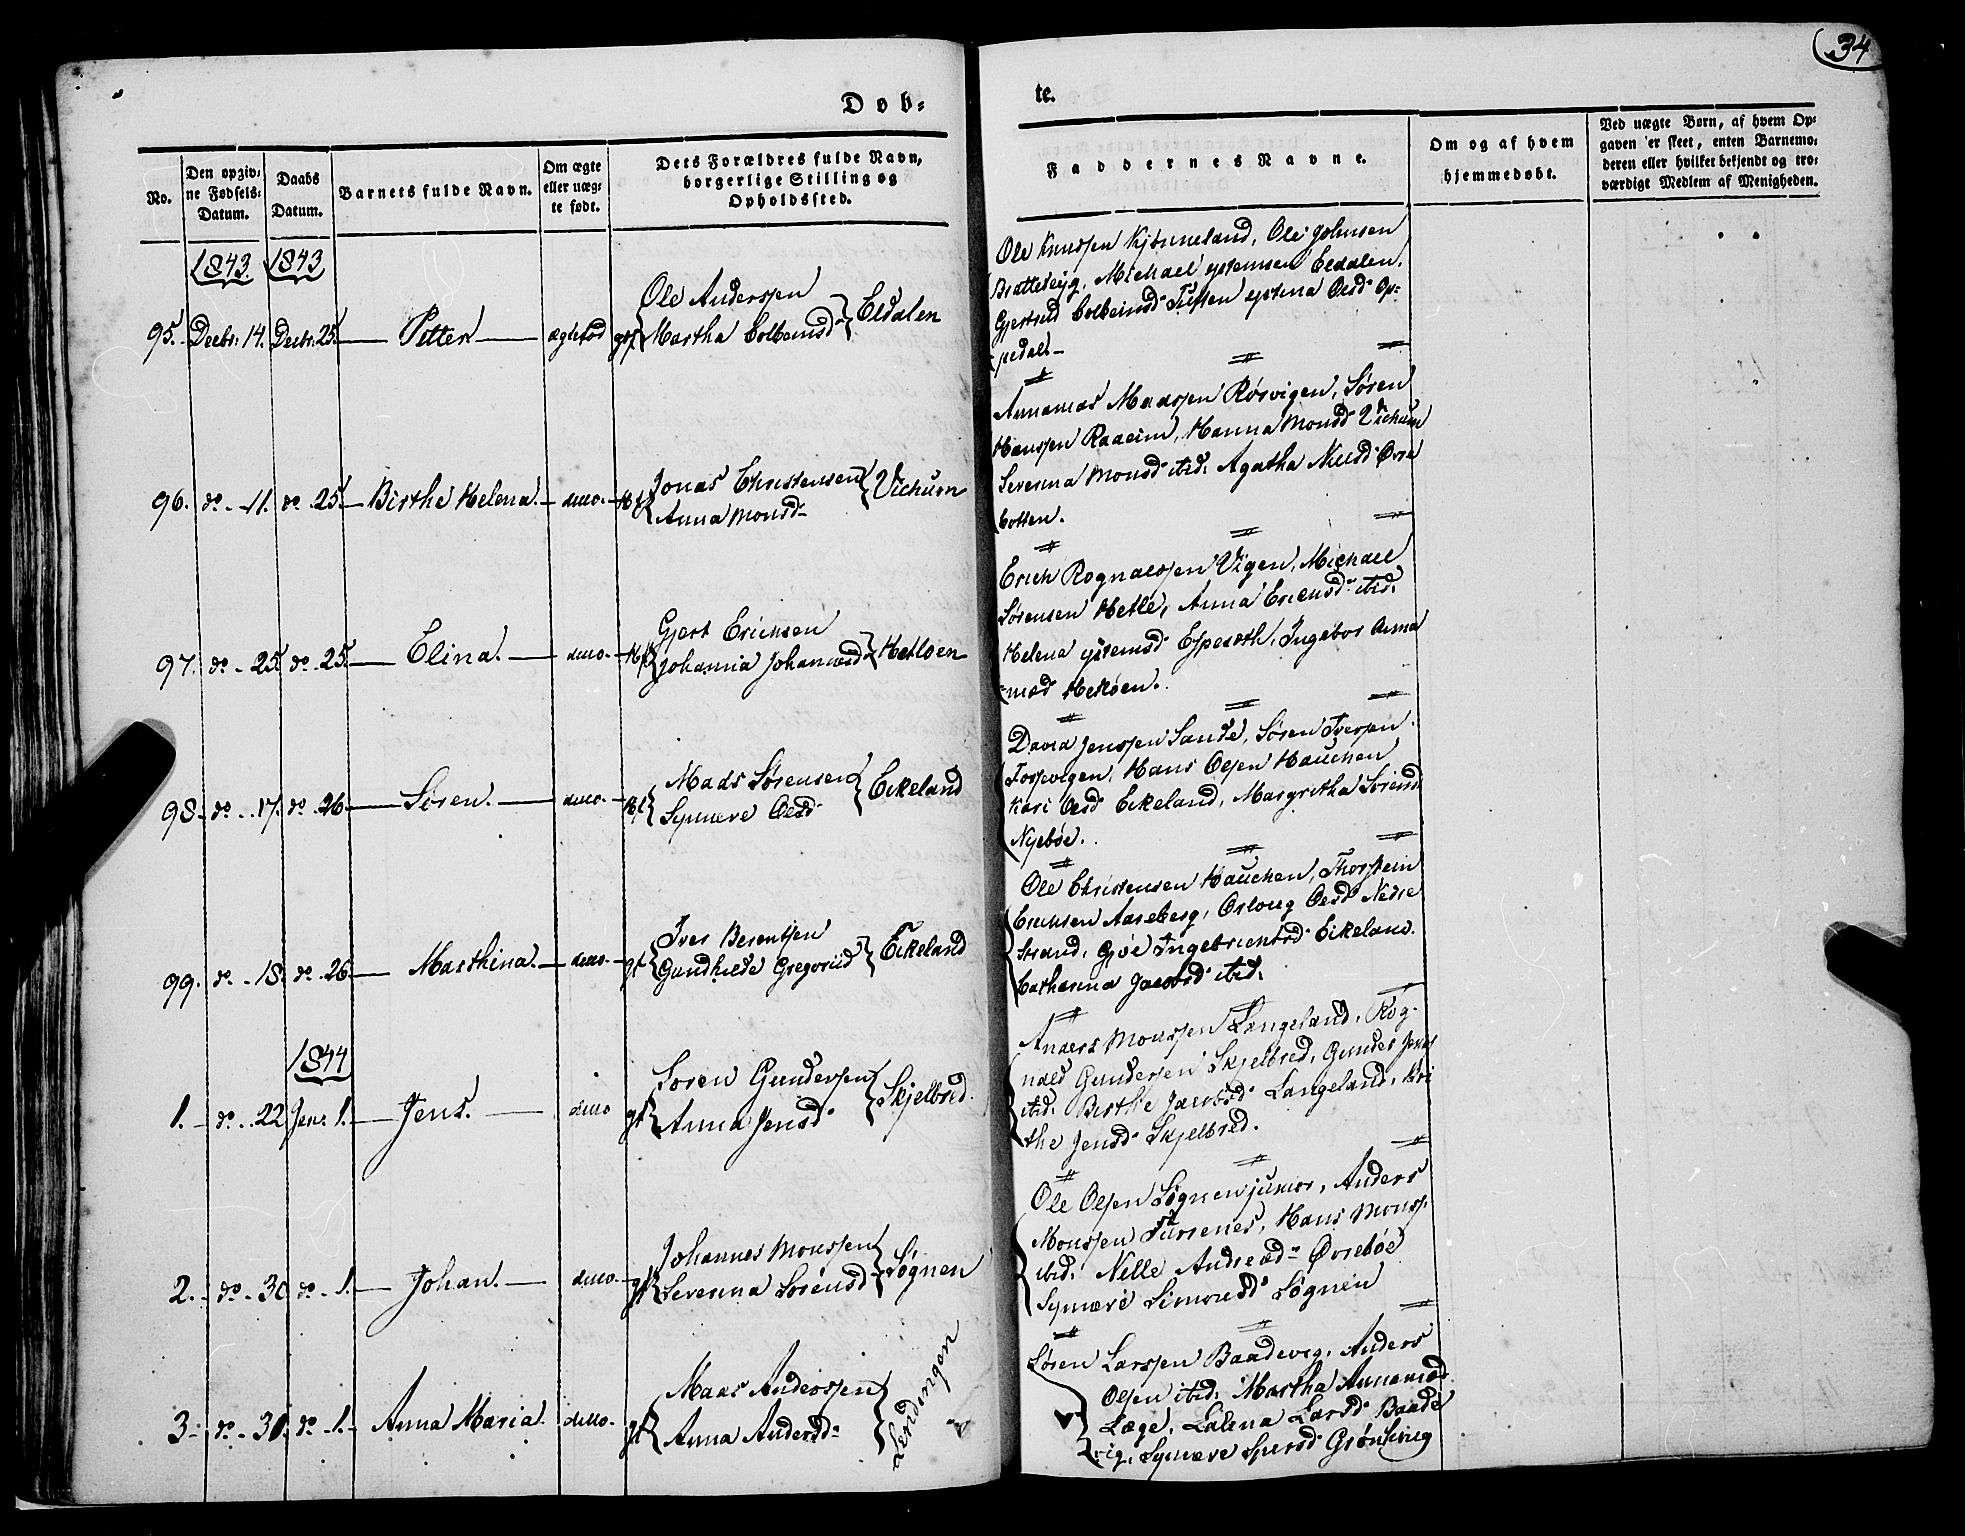 34
Døb=
te.
No.
Den opgiv=
ne Fødsels=
Datum.
Daabs
Datum.
Barnets fulde Navn.
Om ægte
eller uæg=
te født.
Dets Forældres fulde Navn,
borgerlige Stilling og
Opholdssted.
Faddernes Navne.
Om og af hvem
hjemmedøbt.
Ved uægte Børn, af hvem Op=
gaven er skeet, enten Barnemo=
deren eller hvilket bekjendt og tro=
værdigt Medlem af Menigheden.
1843. 1843
95. Decbr. 14. Decbr. 25. Petter ægtefød
Ole Anderssen
Martha Colbeinsd
Eldalen
Ole Knudssen Kjønneland, Ole Johnsen
Bratteteig, Michael Eldalen.
Gjertrud Colbeinsd Olsd Op=
pedal.
96. do. 11. do. 25. Birthe Helena. ditto.
Jonas Christensen
Anna Monsd
Vichum
Annanias Madssen Røsvigen, Søren
Hanssen Raaeim, Hanna Monsd Vichum
Severina Monsd ibid. Agatha Nilsd Øvre
botten.
97. do. 25. do. 25. Elina. ditto.
Gjert Erichsen
Johanna Johannesd
Hetløen
Erich Rognalssen Vigen, Michael
Sørensen Hetle, Anna Erichsd ibid.
Helena Espeseth, Ingebor Anna
Hetløen.
98. do. 17. do. 26. Søren. ditto.
Mads Sørensen
Synneve Olsd
Eikeland
David Jenssen Sande, Søren Iversen
Hans Olsen Hauchen
Kari Olsd Eikeland, Margretha Sørensd
Nyebøe.
99. do. 18. do. 26 Marthina. ditto.
Iver Berentsen
Gundhilde Gregoriid
Eikeland
Ole Christensen Hauchen, Thorstein
Erichsen Aareberg, Osloug Olsd Nedre
Strand, Gjøe Eikeland.
Catharina Jacobsd ibid.
1844
1. do. 22 Jan. 1. Jens. ditto
Søren Gunderssen
Anna Jensd
Skjelbred.
Anders Monssen Langeland, Rog=
nald Gunderssen Skjelbred, Gunder Jenss
ibid. Birthe Jacobsd Langeland, Bri
the Jensd Skjelbred.
2. do. 30 do. 1. Johan. ditto.
Johannes Monssen
Severina Sørensd
Søgnen
Ole Olsen Søgnen junior, Anders
Monssen Hans Monss.
ibid. Nille Andread Øvrebøe
Synneve Simonsd Søgnen
3. do. 31. do. 1. Anna Maria. ditto.
Mads Anderssen
Anna Andersd
Leidingen
Søren Larssen Baadevig, Anders
Olsen ibid. Martha Annaniæd
Læge, Lalena Larsd Baade
vig, Synneve